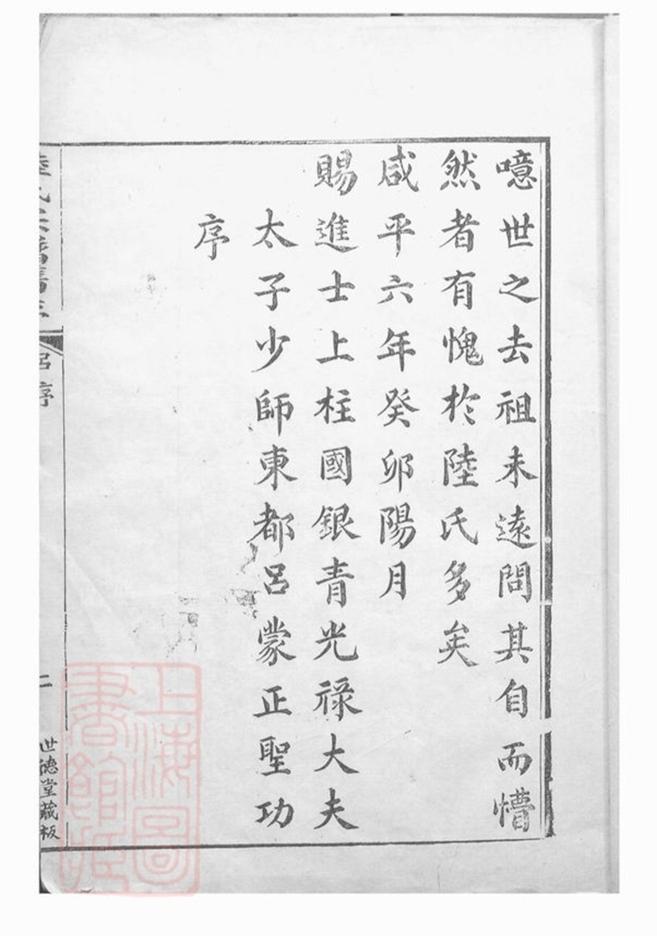 噫世之去祖未遠問其自而懵
然者有愧於陸氏多矣
咸平六年癸卯陽月
賜進士上柱國銀青光祿大夫
太子少師東都呂蒙正聖功
序
呂序
二
世德堂藏板
上海圖
書館